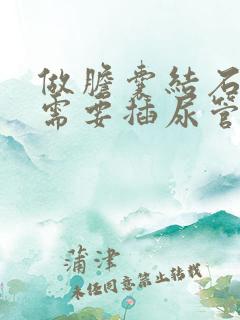 做膽囊結石
需要插尿管
蒲津
未经同意禁止转载